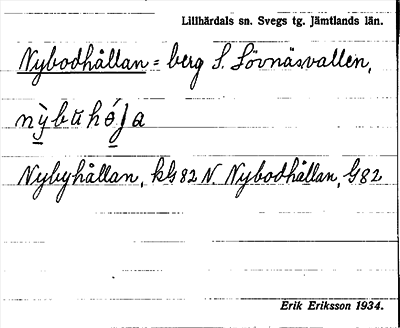 Lillhärdals sn. Svegs tg. Jämtlands län.
Nybodhållan = berg S. Lövnäsvallen,
Nybyhållan, kG82 N. Nybodhållan, G82
Erik Eriksson 1934.